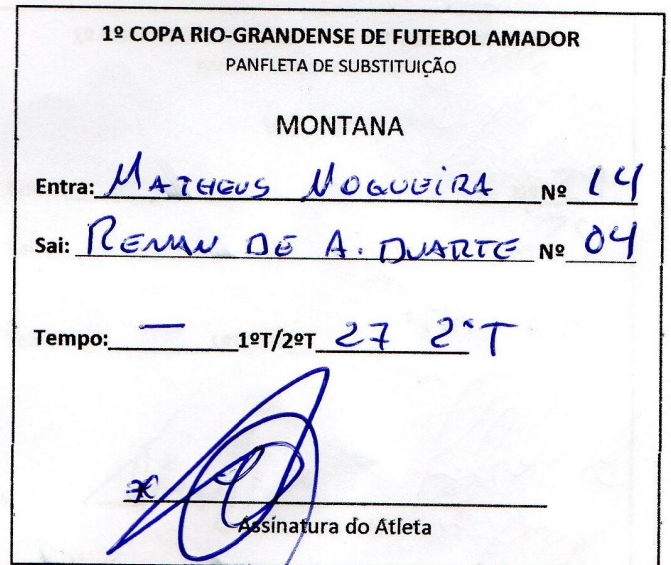 1º COPA RIO-GRANDENSE DE FUTEBOL AMADOR
PANFLETA DE SUBSTITUIÇÃO
MONTANA
Entra: MATHEUS NOGUEIRA Nº 14
Sai: RENAN DE A. DUARTE Nº 04
Tempo: — 1ºT/2ºT 27 2ºT
x
Assinatura do Atleta